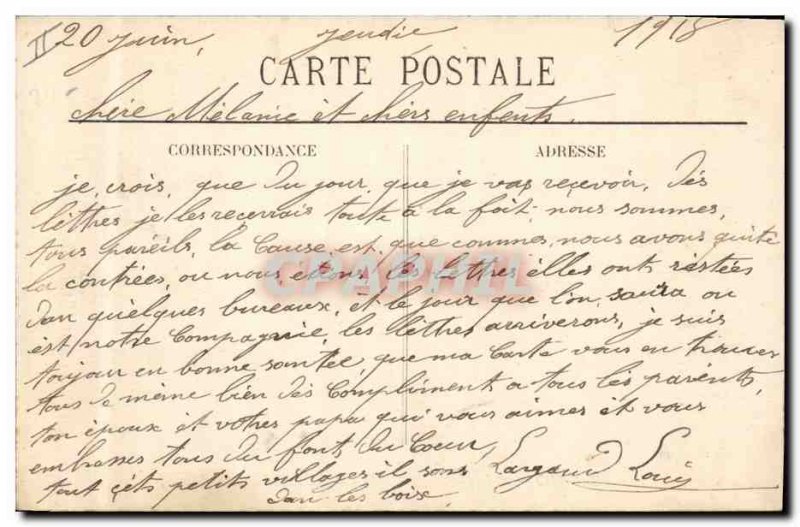 II 20 juin, jeudie 1918
CARTE POSTALE
chère Mélanie èt chèrs enfents.
CORRESPONDANCE ADRESSE
je, crois, que du jour, que je vas reçevoir, dés
lèttres je les recevrais toute a la foit, nous sommes,
tous paréils, la Cause est, que commes, nous avons quité
la contrées, ou nous, étions, les lèttres èlles onts réstées
dan quelques bureaux, èt le jour, que l'on, saura ou
est notre Compagnie, les lèttres arriverons, je suis
toujour en bonne santée, que ma Carte vous en trouves
tous de même bien dés Compliments a tous lés parénts,
ton époux èt vôtres papa qui vous aimes èt vous
embrasses tous du font, du Coeur, Lougaud Louis
tout çéts petits villages il sons
dan les boix.
CPAPHIL